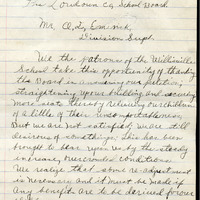 The Loudoun Co. School Board
Mr. O. L. Emerick,
Division Supt.
We the patrons of the Willisville
School take this opportunity of thanking
the Board in
straightening up our building, and securing
more seats thereby relieving our children
of a little of their
But we are not satisfied, we are still
desirous of something. This has been
brought to bear upon us by the steady
increase, overcrowded conditions.
We realize that some re-adjustment
is necessary and it must be made if
any benefits are to be derived for our